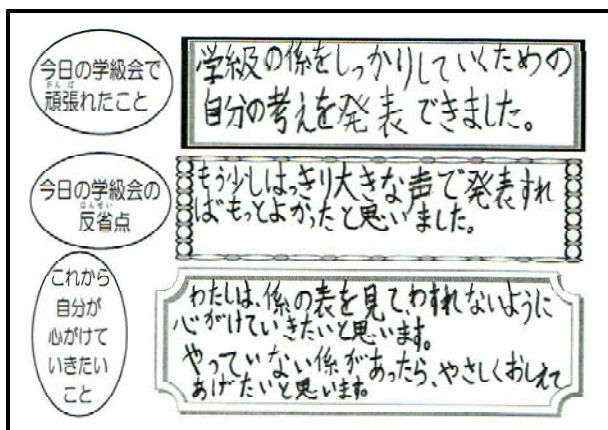 今日の学級会で
頑張れたこと
がんば
学級の係をしっかりしていくための
自分の考えを発表できました。
今日の学級会の
反省点
はんせい
もう少しはっきり大きな声で発表すれ
ばもっとよかったと思いました。
これから
自分が
心がけて
いきたい
こと
わたしは、係の表を見て、わすれないように
心がけていきたいと思います。
やっていない係があったら、やさしくおしえて
あげたいと思います。